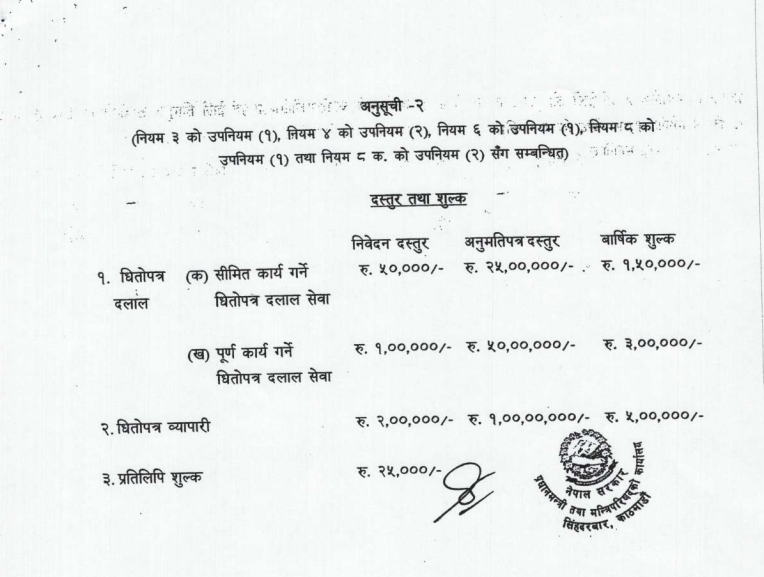 अनुसूची -२
(नियम ३ को उपनियम (१), नियम ४ को उपनियम (२), नियम ६ को उपनियम (१), नियम ८ को
उपनियम (१) तथा नियम ८ क. को उपनियम (२) सँग सम्बन्धित)
दस्तुर तथा शुल्क
निवेदन दस्तुर अनुमतिपत्र दस्तुर बार्षिक शुल्क
१. धितोपत्र (क) सीमित कार्य गर्ने रु. ५०,०००/- रु. २५,००,०००/- रु. १,५०,०००/-
दलाल धितोपत्र दलाल सेवा
(ख) पूर्ण कार्य गर्ने रु. १,००,०००/- रु. ५०,००,०००/- रु. ३,००,०००/-
धितोपत्र दलाल सेवा
२. धितोपत्र व्यापारी रु. २,००,०००/- रु. १,००,००,०००/- रु. ५,००,०००/-
३. प्रतिलिपि शुल्क रु. २५,०००/-
नेपाल सरकार
प्रधानमन्त्री तथा मन्त्रिपरिषद्को कार्यालय
सिंहदरबार, काठमाडौं